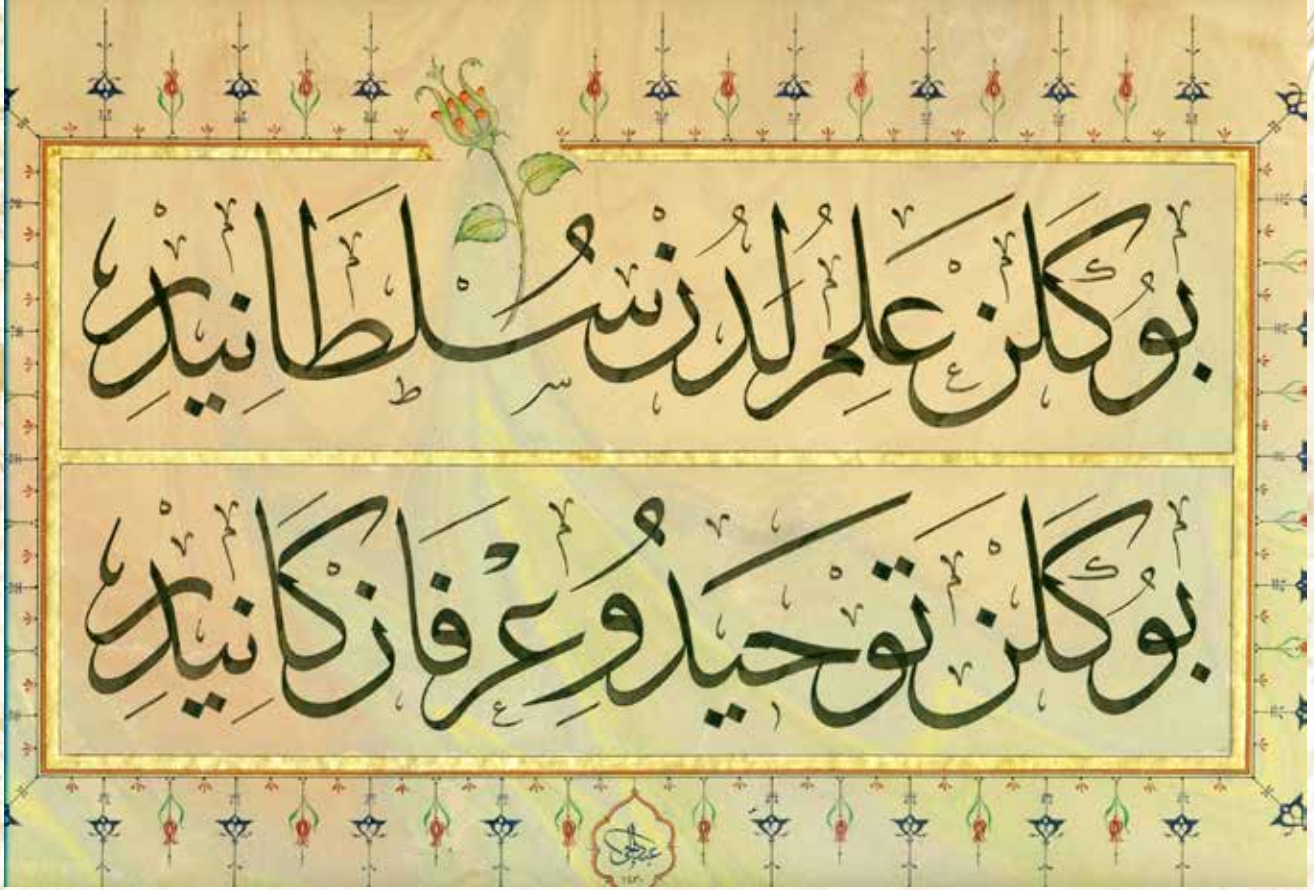 بو كلن علم لدن سلطانيدر
بو كلن توحيد و عرفان كانيدر
١٤٣٠